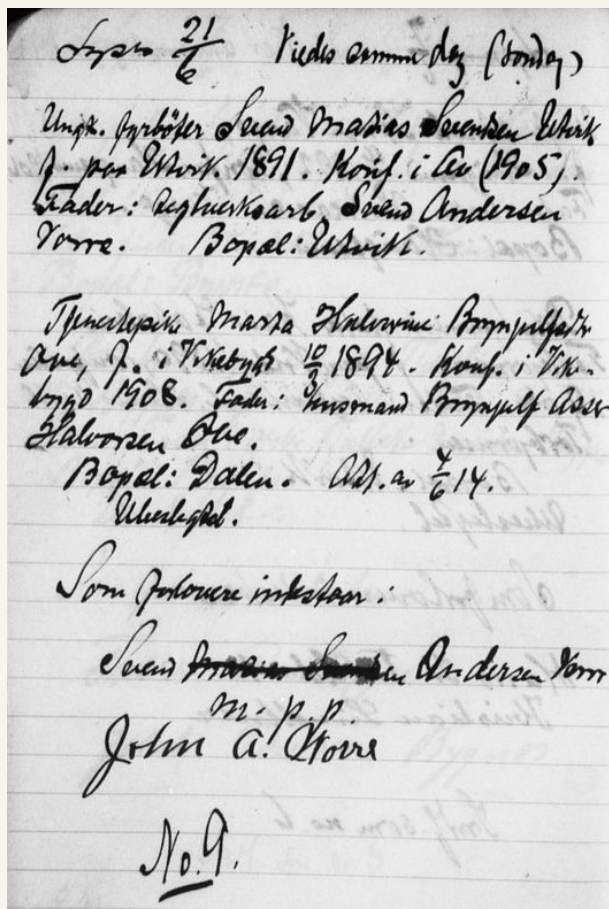 21/6 Vies samme dag (Søndag)
Ungk. fyrbøter Svend Matias Svendsen Utvik
f. paa Utvik 1891. Konf. i Av (1905).
Fader: teglverksarb. Svend Andersen
Vorre. Bopæl: Utvik.
Tjenestepike Marta Brynjulfsdtr
Ove, f. i Vikebygd 10/3 1894. Konf. i Vike-
bygd 1908. Fader: husmand Brynjulf Asser
Halvorsen Ove.
Bopæl: Dalen. Att. av 4/6 14.
Ubeslegtet.
Som forlovere indestaar:
Svend Andersen Vorre
m. p. p.
John A. Vorre
No. 9.